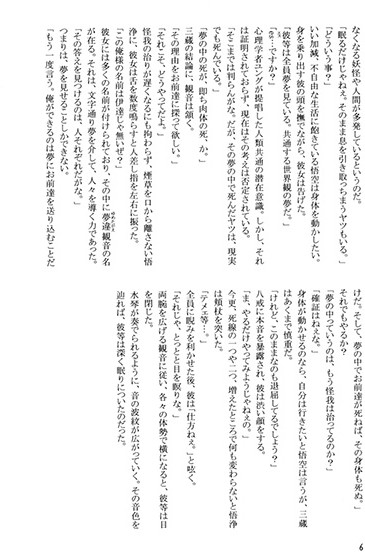 なくなる妖怪や人間が多発しているというのだ。
「眠るだけじゃねぇ。そのまま息を引き取っちまうヤツもいる。」
「どういう事？」
いい加減、不自由な生活に飽きている悟空は身体を動かしたい。
身を乗り出す彼の頭を撫でながら、彼女は告げた。
「彼等は全員夢を見ている。共通する世界観の夢だ。」
「…ですか？」
心理学者ユングが提唱した人類共通の潜在意識。しかし、それ
は証明されておらず、現在はその考えは否定されている。
「そこまでは判らんがな。だが、その夢の中で死んだヤツは、現実
でも死んでいる。」
「夢の中の死が、即ち肉体の死、か。」
三蔵の結論に、観音は頷く。
「その理由をお前達に探って欲しい。」
「それこそ、どうやってだよ。」
怪我の治りが遅くなるにも拘わらず、煙草を口から離さない悟
浄に、彼女は舌を数度鳴らすと人差し指を左右に振った。
「この俺様の名前は伊達じゃ無いぜ？」
彼女には多くの名前が付けられており、その中に夢違観音の名
が在る。それは、文字通り夢を介して、人々を導く力であった。
「その答えを見つけるのは、人それぞれだがな。」
つまりは、夢を見せることしかできない。
「もう一度言う。俺ができるのは夢にお前達を送り込むことだ
けだ。そして、夢の中でお前達が死ねば、その身体も死ぬ。」
それでもやるか？
「夢の中っていうのは、もう怪我は治ってるのか？」
「確証はねぇな。」
身体が動かせるのなら、自分は行きたいと悟空は言うが、三蔵
はあくまで慎重だ。
「けれど、このままなのも退屈してるでしょう？」
八戒に本音を暴露され、彼は渋い顔をする。
「ま、やるだけやってみようじゃねぇの。」
今更、死線の一つや二つ、増えたところで何も変わらないと悟浄
は頬杖を突いた。
「テメェ等…。」
全員に睨みを利かせた後、彼は「仕方ねぇ。」と呟く。
「それじゃ、とっとと目を瞑りな。」
両腕を広げる観音に従い、各々の体勢で横になると、彼等は目
を閉じた。
水琴が奏でられるように、音の波紋が広がっていく。その音色を
辿れば、彼等は深く眠りについたのだった。
6